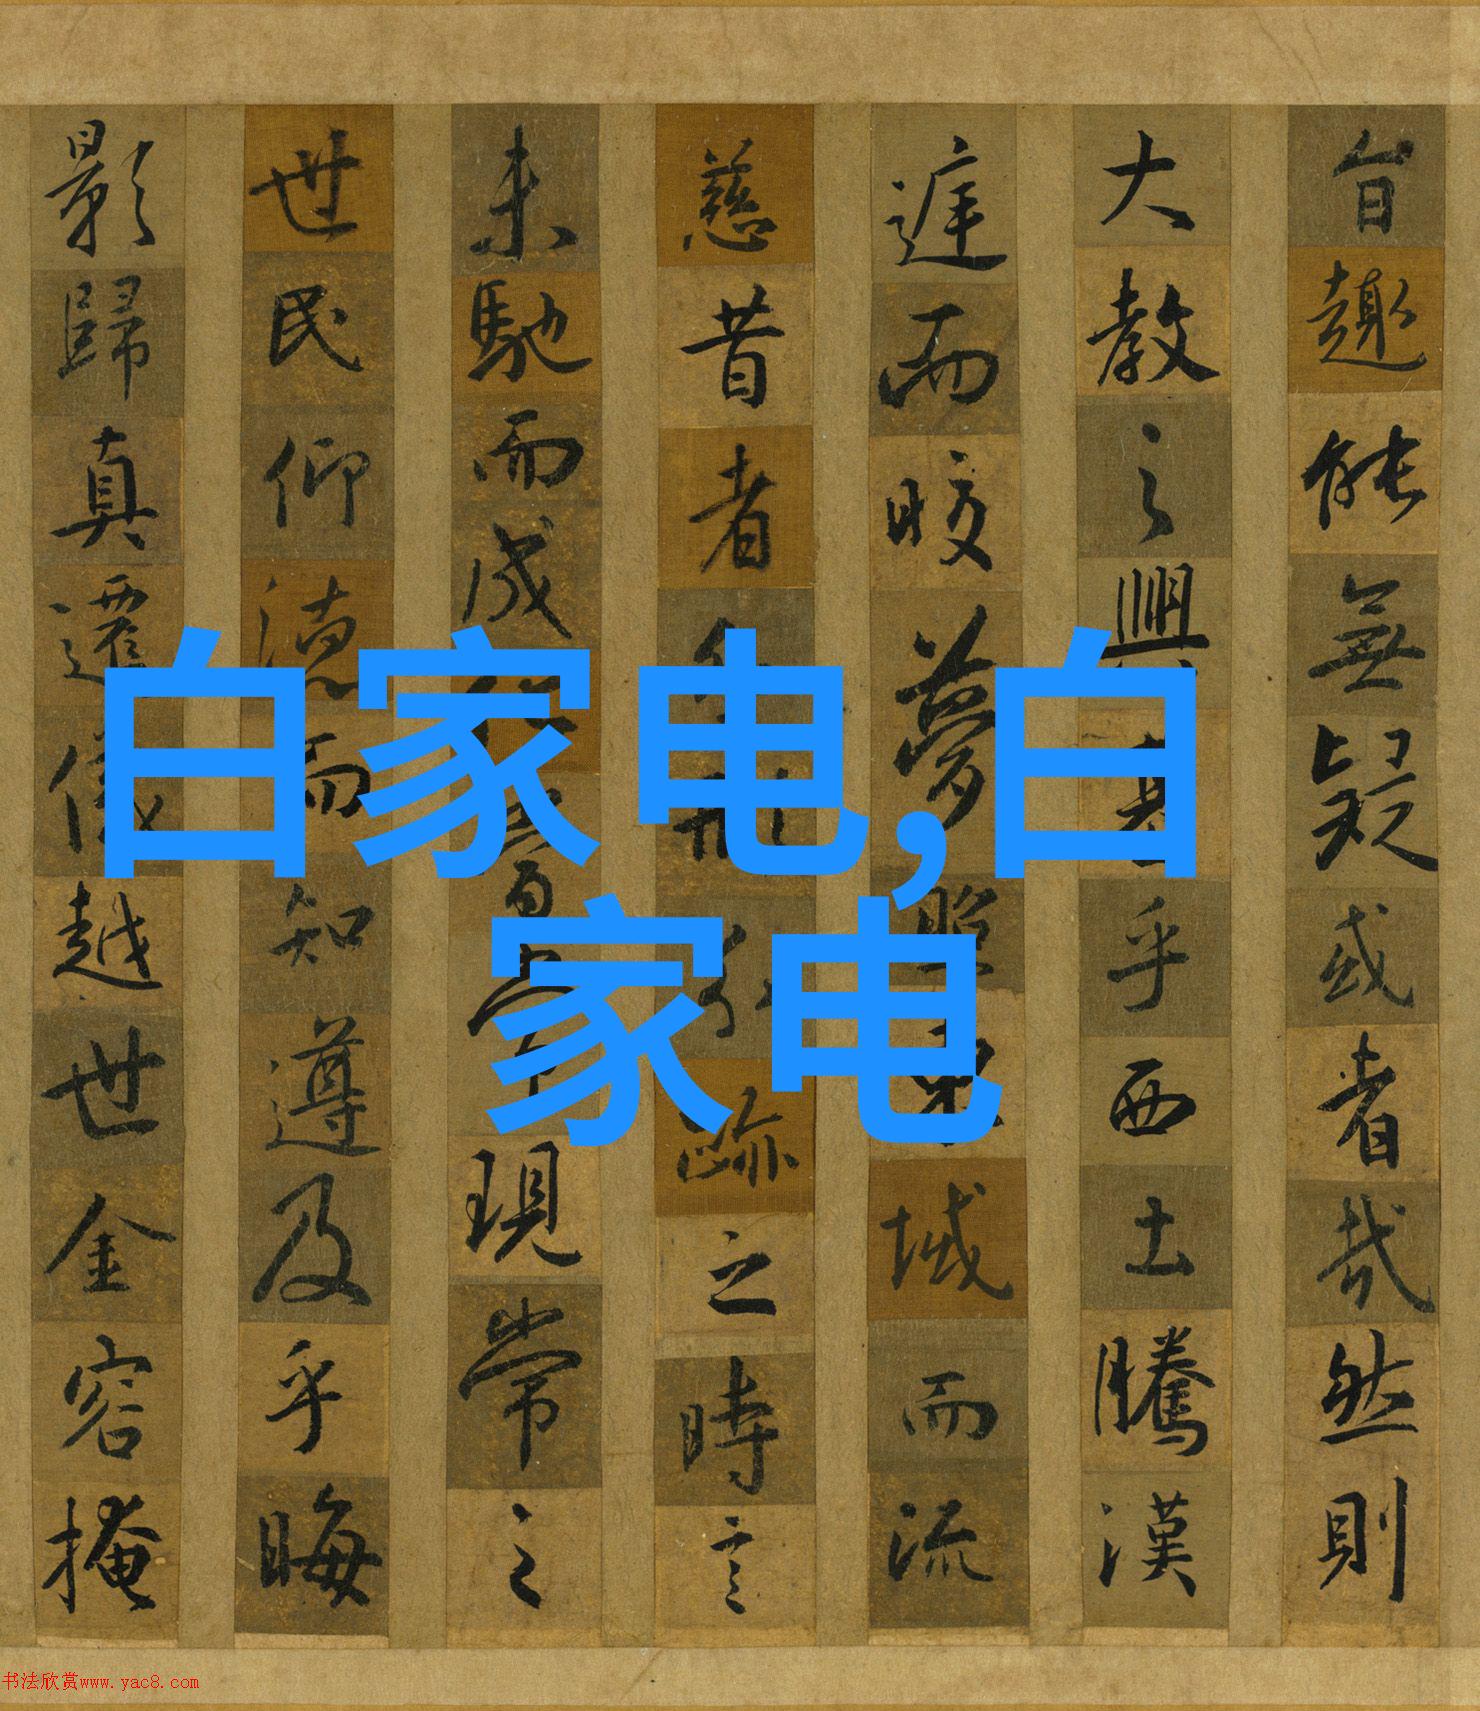 旨趣能無疑或者哉然則
大教之興基乎西土騰漢
庭而皎夢照東域而流
慈昔者分形分跡之時言
未馳而成化當常現常之
世民仰德而知遵及乎晦
影歸真遷儀越世金容掩
白家电,白
家电
书法欣赏www.yac8.com